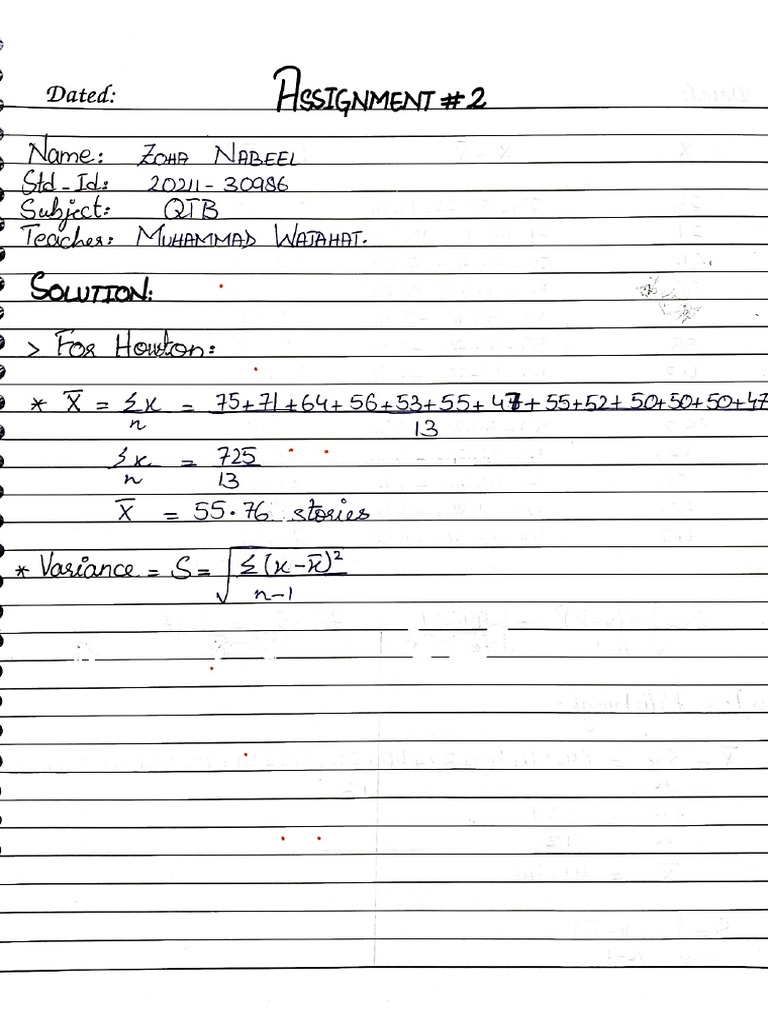 Dated: ASSIGNMENT # 2
Name: ZOHA NABEEL
Std-Id: 20211-30986
Subject: QTB
Teacher: MUHAMMAD WAJAHAT.
SOLUTION:
> For Houston:
* X̄ = Σx/n = 75+71+64+56+53+55+47+55+52+50+50+50+47/13
Σx/n = 725/13
X̄ = 55.76 stories
* Variance = S = √Σ(x-x̄)²/n-1